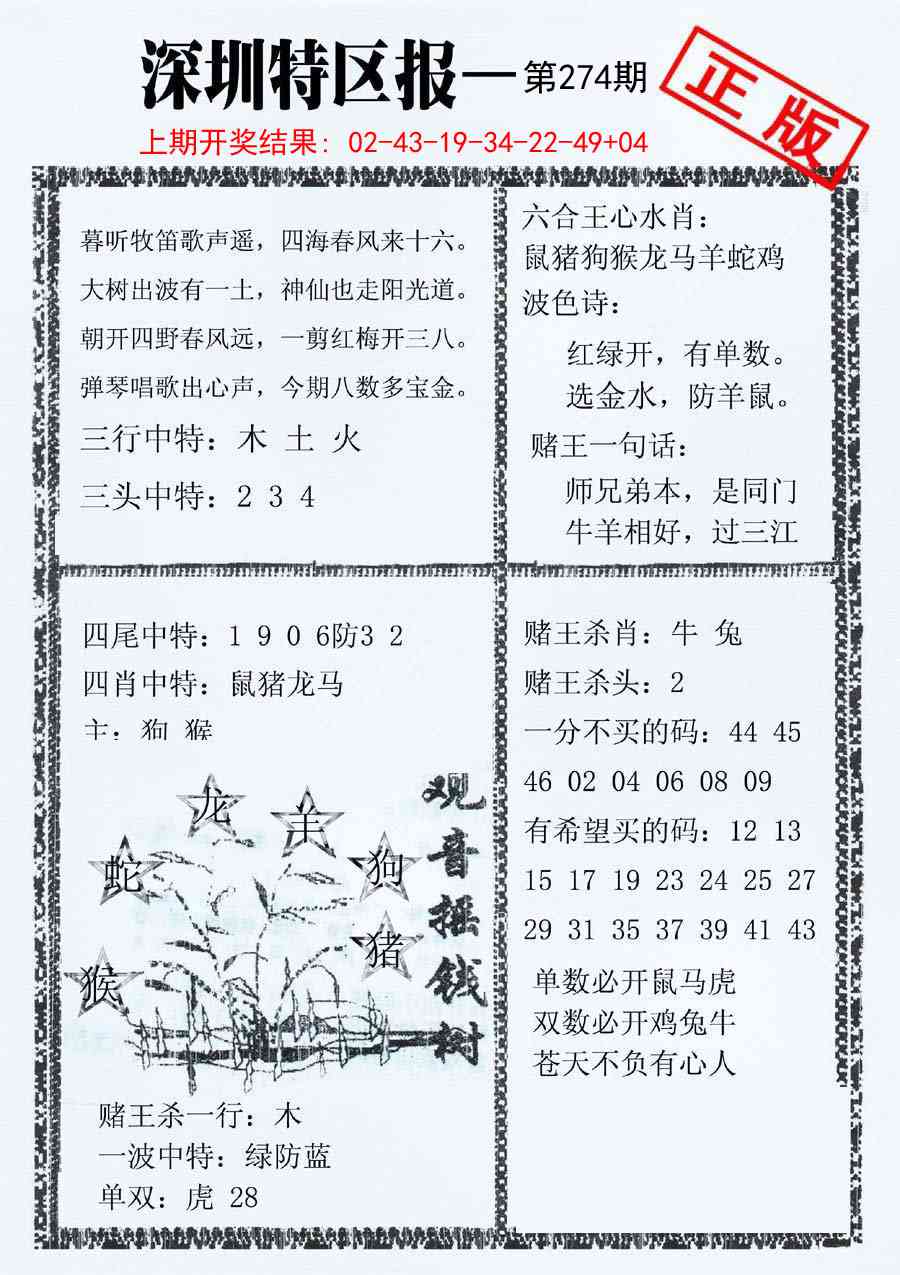 深圳特区报—第274期
正版
上期开奖结果：02-43-19-34-22-49+04
暮听牧笛歌声遥，四海春风来十六。
大树出波有一土，神仙也走阳光道。
朝开四野春风远，一剪红梅开三八。
弹琴唱歌出心声，今期八数多宝金。
三行中特：木 土 火
三头中特：2 3 4
六合王心水肖：
鼠猪狗猴龙马羊蛇鸡
波色诗：
红绿开，有单数。
选金水，防羊鼠。
赌王一句话：
师兄弟本，是同门
牛羊相好，过三江
四尾中特：1 9 0 6防3 2
四肖中特：鼠猪龙马
主：狗 猴
龙
羊
蛇
狗
猪
猴
观音摇钱树
赌王杀一行：木
一波中特：绿防蓝
单双：虎 28
赌王杀肖：牛 兔
赌王杀头：2
一分不买的码：44 45
46 02 04 06 08 09
有希望买的码：12 13
15 17 19 23 24 25 27
29 31 35 37 39 41 43
单数必开鼠马虎
双数必开鸡兔牛
苍天不负有心人